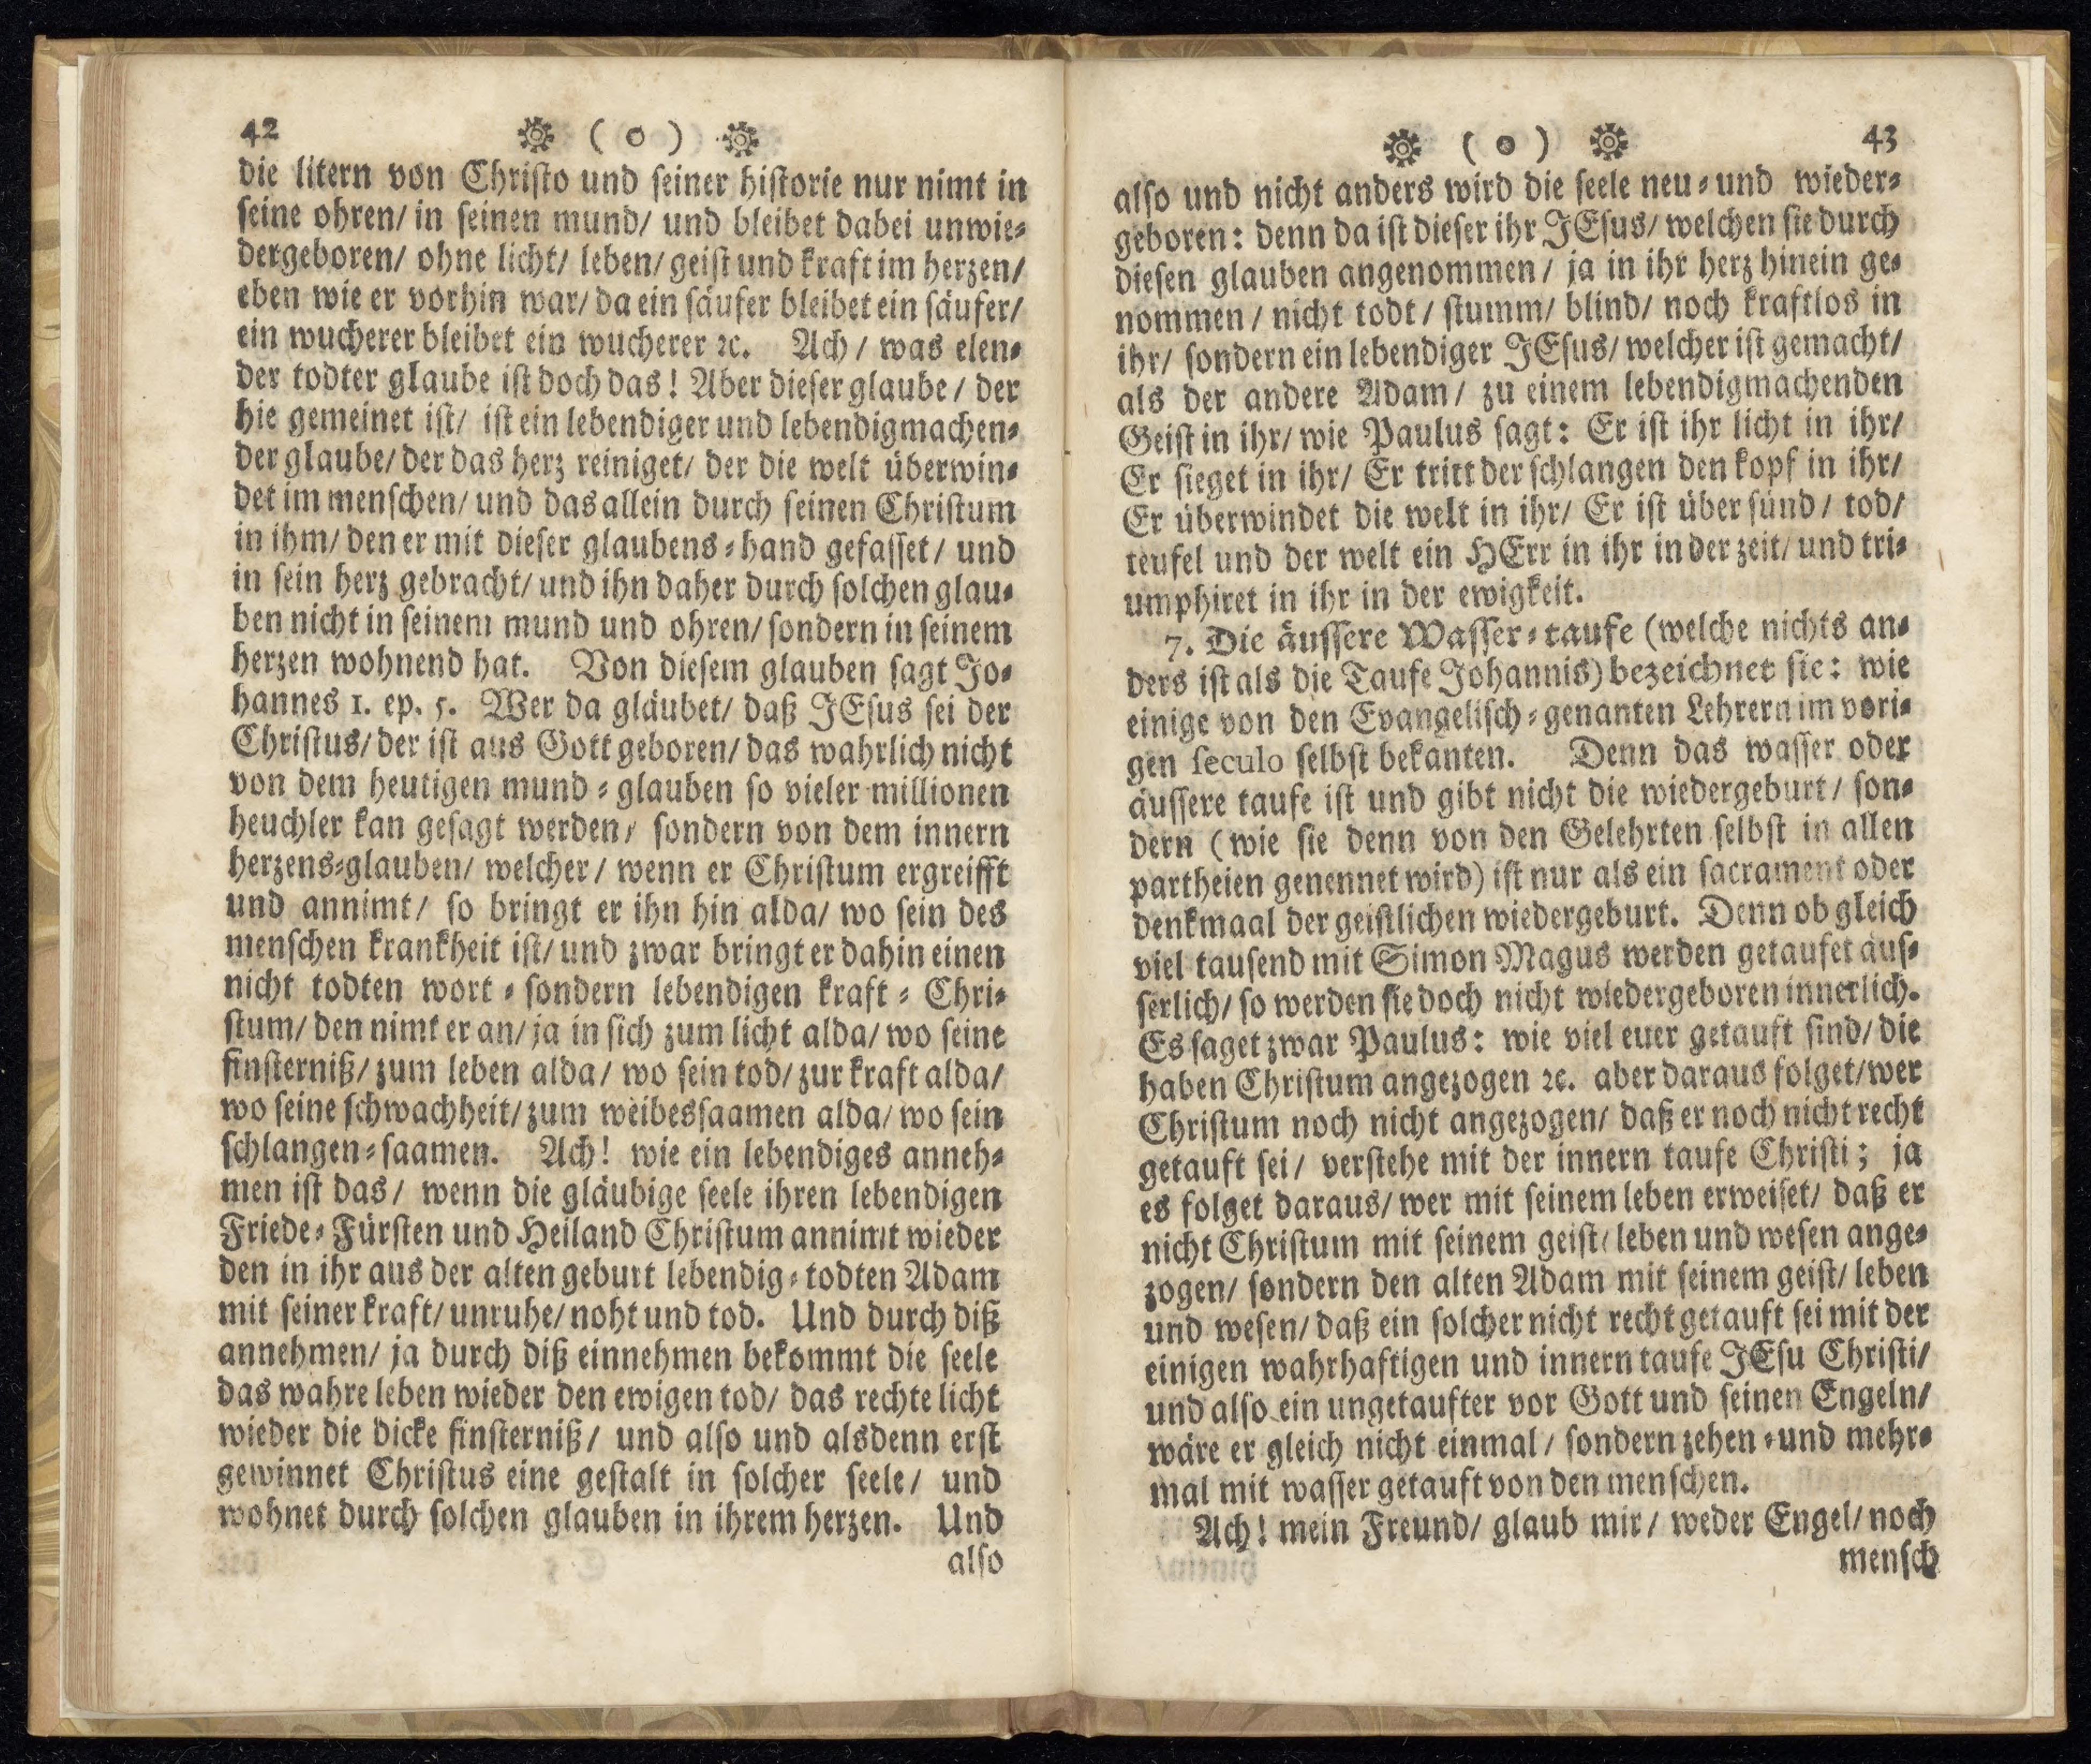 42 ( o )
die litern von Christo und seiner historie nur nimt in
seine ohren/ in seinen mund/ und bleibet dabei unwie-
dergeboren/ ohne licht/ leben/ geist und kraft im herzen/
eben wie er vorhin war/ da ein säufer bleibet ein säufer/
ein wucherer bleibet ein wucherer ꝛc. Ach / was elen-
der todter glaube ist doch das! Aber dieser glaube / der
hie gemeinet ist/ ist ein lebendiger und lebendigmachen-
der glaube/ der das herz reiniget/ der die welt überwin-
det im menschen/ und das allein durch seinen Christum
in ihm/ den er mit dieser glaubens-hand gefasset/ und
in sein herz gebracht/ und ihn daher durch solchen glau-
ben nicht in seinem mund und ohren/ sondern in seinem
herzen wohnend hat. Von diesem glauben sagt Jo-
hannes 1. ep. 5. Wer da gläubet/ daß JEsus sei der
Christus/ der ist aus Gott geboren/ das wahrlich nicht
von dem heutigen mund-glauben so vieler millionen
heuchler kan gesagt werden/ sondern von dem innern
herzens-glauben/ welcher / wenn er Christum ergreifft
und annimt/ so bringt er ihn hin alda/ wo sein des
menschen krankheit ist/ und zwar bringt er dahin einen
nicht todten wort-sondern lebendigen kraft-Chri-
stum/ den nimt er an/ ja in sich zum licht alda/ wo seine
finsterniß/ zum leben alda/ wo sein tod/ zur kraft alda/
wo seine schwachheit/ zum weibessaamen alda/ wo sein
schlangen-saamen. Ach! wie ein lebendiges anneh-
men ist das/ wenn die gläubige seele ihren lebendigen
Friede-Fürsten und Heiland Christum annimt wieder
den in ihr aus der alten geburt lebendig-todten Adam
mit seiner kraft/ unruhe/ noht und tod. Und durch diß
annehmen/ ja durch diß einnehmen bekommt die seele
das wahre leben wieder den ewigen tod/ das rechte licht
wieder die dicke finsterniß/ und also und alsdenn erst
gewinnet Christus eine gestalt in solcher seele/ und
wohnet durch solchen glauben in ihrem herzen. Und
also
( o ) 43
also und nicht anders wird die seele neu-und wieder-
geboren: denn da ist dieser ihr JEsus/ welchen sie durch
diesen glauben angenommen/ ja in ihr herz hinein ge-
nommen / nicht todt / stumm/ blind/ noch kraftlos in
ihr/ sondern ein lebendiger JEsus/ welcher ist gemacht/
als der andere Adam/ zu einem lebendigmachenden
Geist in ihr/ wie Paulus sagt: Er ist ihr licht in ihr/
Er sieget in ihr/ Er tritt der schlangen den kopf in ihr/
Er überwindet die welt in ihr/ Er ist über sünd / tod/
teufel und der welt ein HErr in ihr in der zeit/ und tri-
umphiret in ihr in der ewigkeit.
7. Die äussere Wasser-taufe (welche nichts an-
ders ist als die Taufe Johannis) bezeichnet sie: wie
einige von den Evangelisch-genanten Lehrern im vori-
gen seculo selbst bekanten. Denn das wasser oder
äussere taufe ist und gibt nicht die wiedergeburt/ son-
dern (wie sie denn von den Gelehrten selbst in allen
partheien genennet wird) ist nur als ein sacrament oder
denkmaal der geistlichen wiedergeburt. Denn ob gleich
viel tausend mit Simon Magus werden getaufet äus-
serlich/ so werden sie doch nicht wiedergeboren innerlich.
Es saget zwar Paulus: wie viel euer getauft sind/ die
haben Christum angezogen ꝛc. aber daraus folget/ wer
Christum noch nicht angezogen/ daß er noch nicht recht
getauft sei/ verstehe mit der innern taufe Christi; ja
es folget daraus/ wer mit seinem leben erweiset/ daß er
nicht Christum mit seinem geist/ leben und wesen ange-
zogen/ sondern den alten Adam mit seinem geist/ leben
und wesen/ daß ein solcher nicht recht getauft sei mit der
einigen wahrhaftigen und innern taufe JEsu Christi/
und also ein ungetaufter vor Gott und seinen Engeln/
wäre er gleich nicht einmal / sondern zehen-und mehr-
mal mit wasser getauft von den menschen.
Ach! mein Freund/ glaub mir/ weder Engel/ noch
mensch